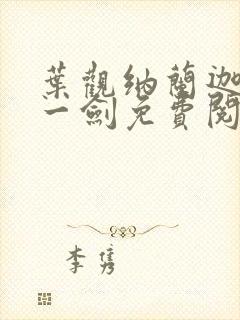 葉觀納蘭迦
一劍免費閱
李隽